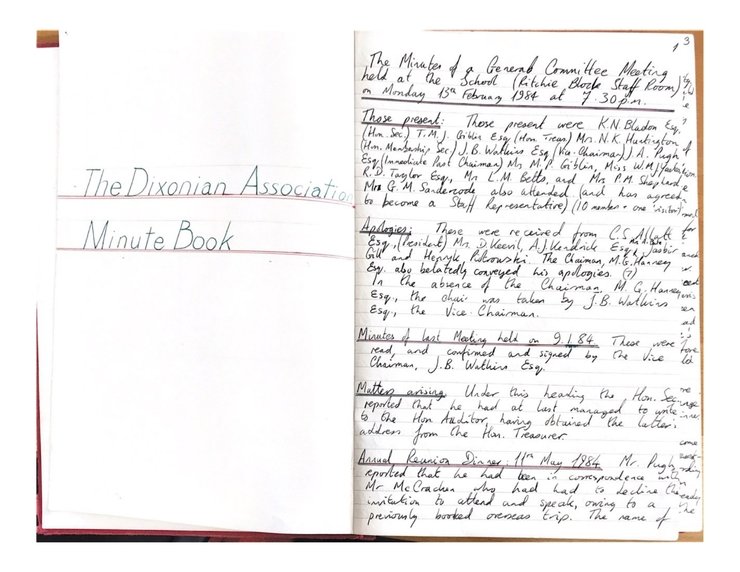 The Dixonian Association
Minute Book
3
1
The Minutes of a General Committee Meeting
held at the School (Ritchie Block Staff Room)
on Monday 13th February 1984 at 7.30 p.m.
Those present: Those present were K.N. Bladon Esq.
(Hon. Sec.) T.M.J. Giblin Esq (Hon. Treas) Mrs. N.K. Huntington
(Hon. Membership Sec) J.B. Watkins Esq (Vice-Chairman) J.A. Pugh
Esq (Immediate Past Chairman) Mrs M.P. Giblin, Miss W.M.
R.D. Taylor Esq, Mrs L.M. Betts, and Mrs P.M. Shepherd
Mrs G.M. also attended (and has agreed
to become a Staff Representative) (10 members + one visitor)
Apologies: These were received from C.S.
Esq, (President) Mrs. D. Keevil, A.J. Kendrick Esq, Jasbir
Gill and Henryk The Chairman, M.G. Hanney
Esq. also belatedly conveyed his apologies. (7)
In the absence of the Chairman, M.G. Hanney
Esq., the chair was taken by J.B. Watkins
Esq., the Vice-Chairman.
Minutes of last Meeting held on 9.1.84. These were
read, and confirmed and signed by the Vice
Chairman, J.B. Watkins Esq.
Matters arising. Under this heading the Hon. Sec.
reported that he had at last managed to write
to the Hon Auditor, having obtained the latter's
address from the Hon. Treasurer.
Annual Reunion Dinner: 11th May 1984. Mr. Pugh
reported that he had been in correspondence with
Mr McCracken who had had to decline the
invitation to attend and speak, owing to a
previously booked overseas trip. The name of